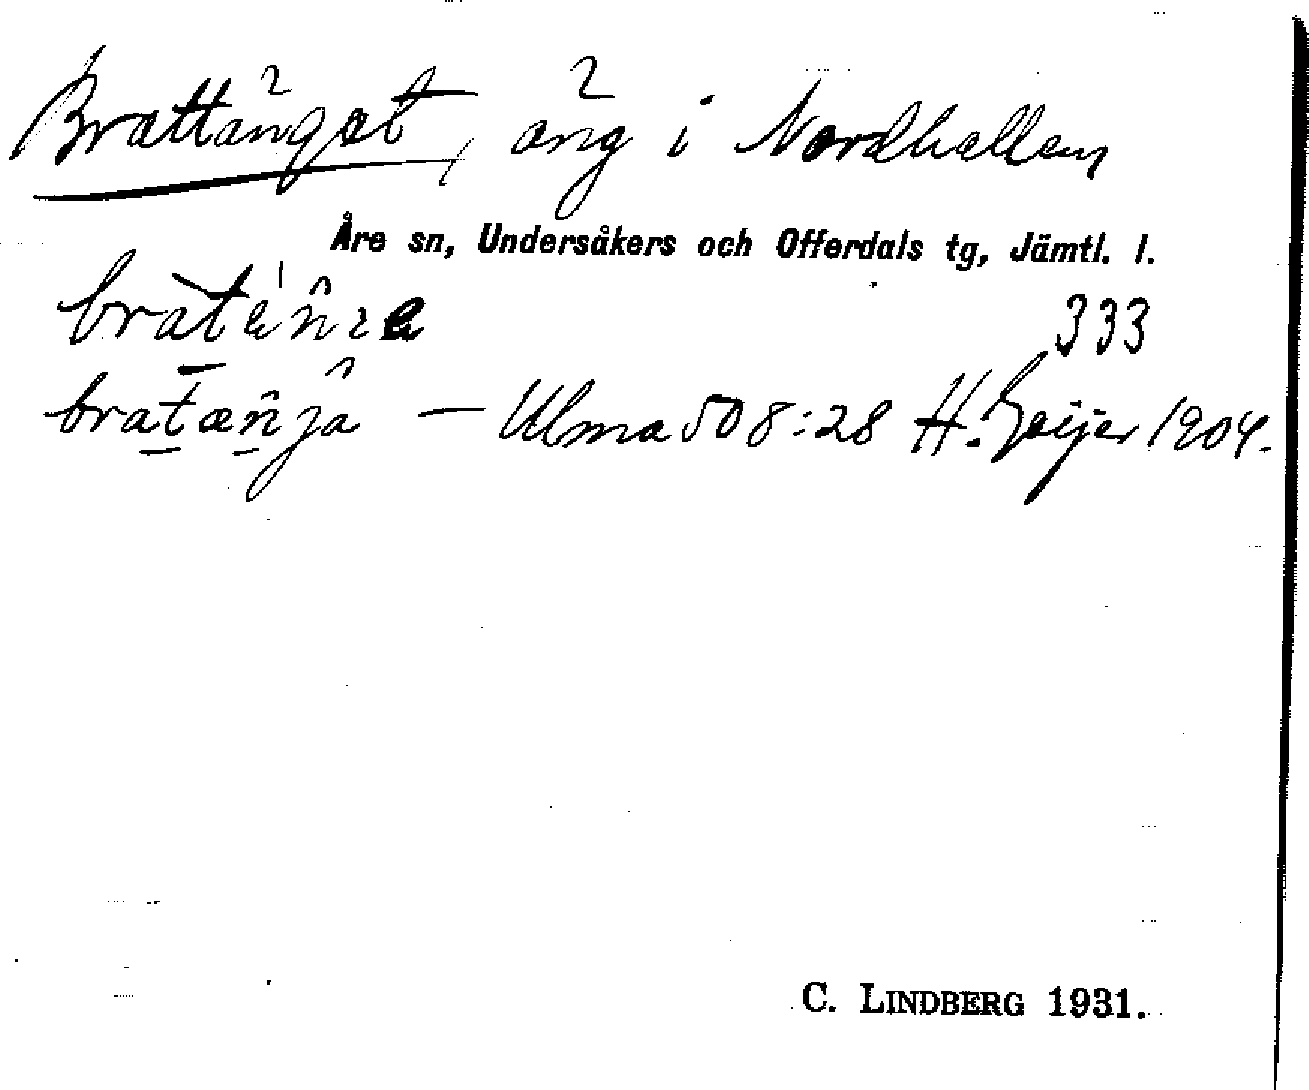 Brattänget, äng i Nordhallen
Åre sn, Undersåkers och Offerdals tg, Jämtl. l.
333
— Ulma 508:28 H. Geijer 1904.
C. LINDBERG 1931.